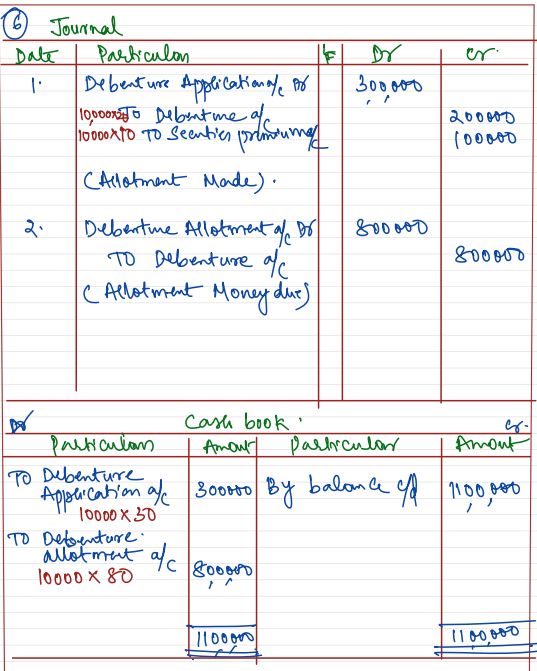 6 Journal
Date Particulars LF Dr Cr.
1. Debenture Application a/c Dr 300,000
10,000x20 To Debenture a/c 200000
10000x10 TO Securities premium a/c 100000
(Allotment Made).
2. Debenture Allotment a/c Dr 800000
TO Debenture a/c 800000
(Allotment Money due)
Dr Cash book. Cr.
Particulars Amount Particular Amount
TO Debenture
Application a/c 300000 By balance c/d 1100,000
10000 x 30
TO Debenture.
allotment a/c 800,000
10000 x 80
1100000 1100,000